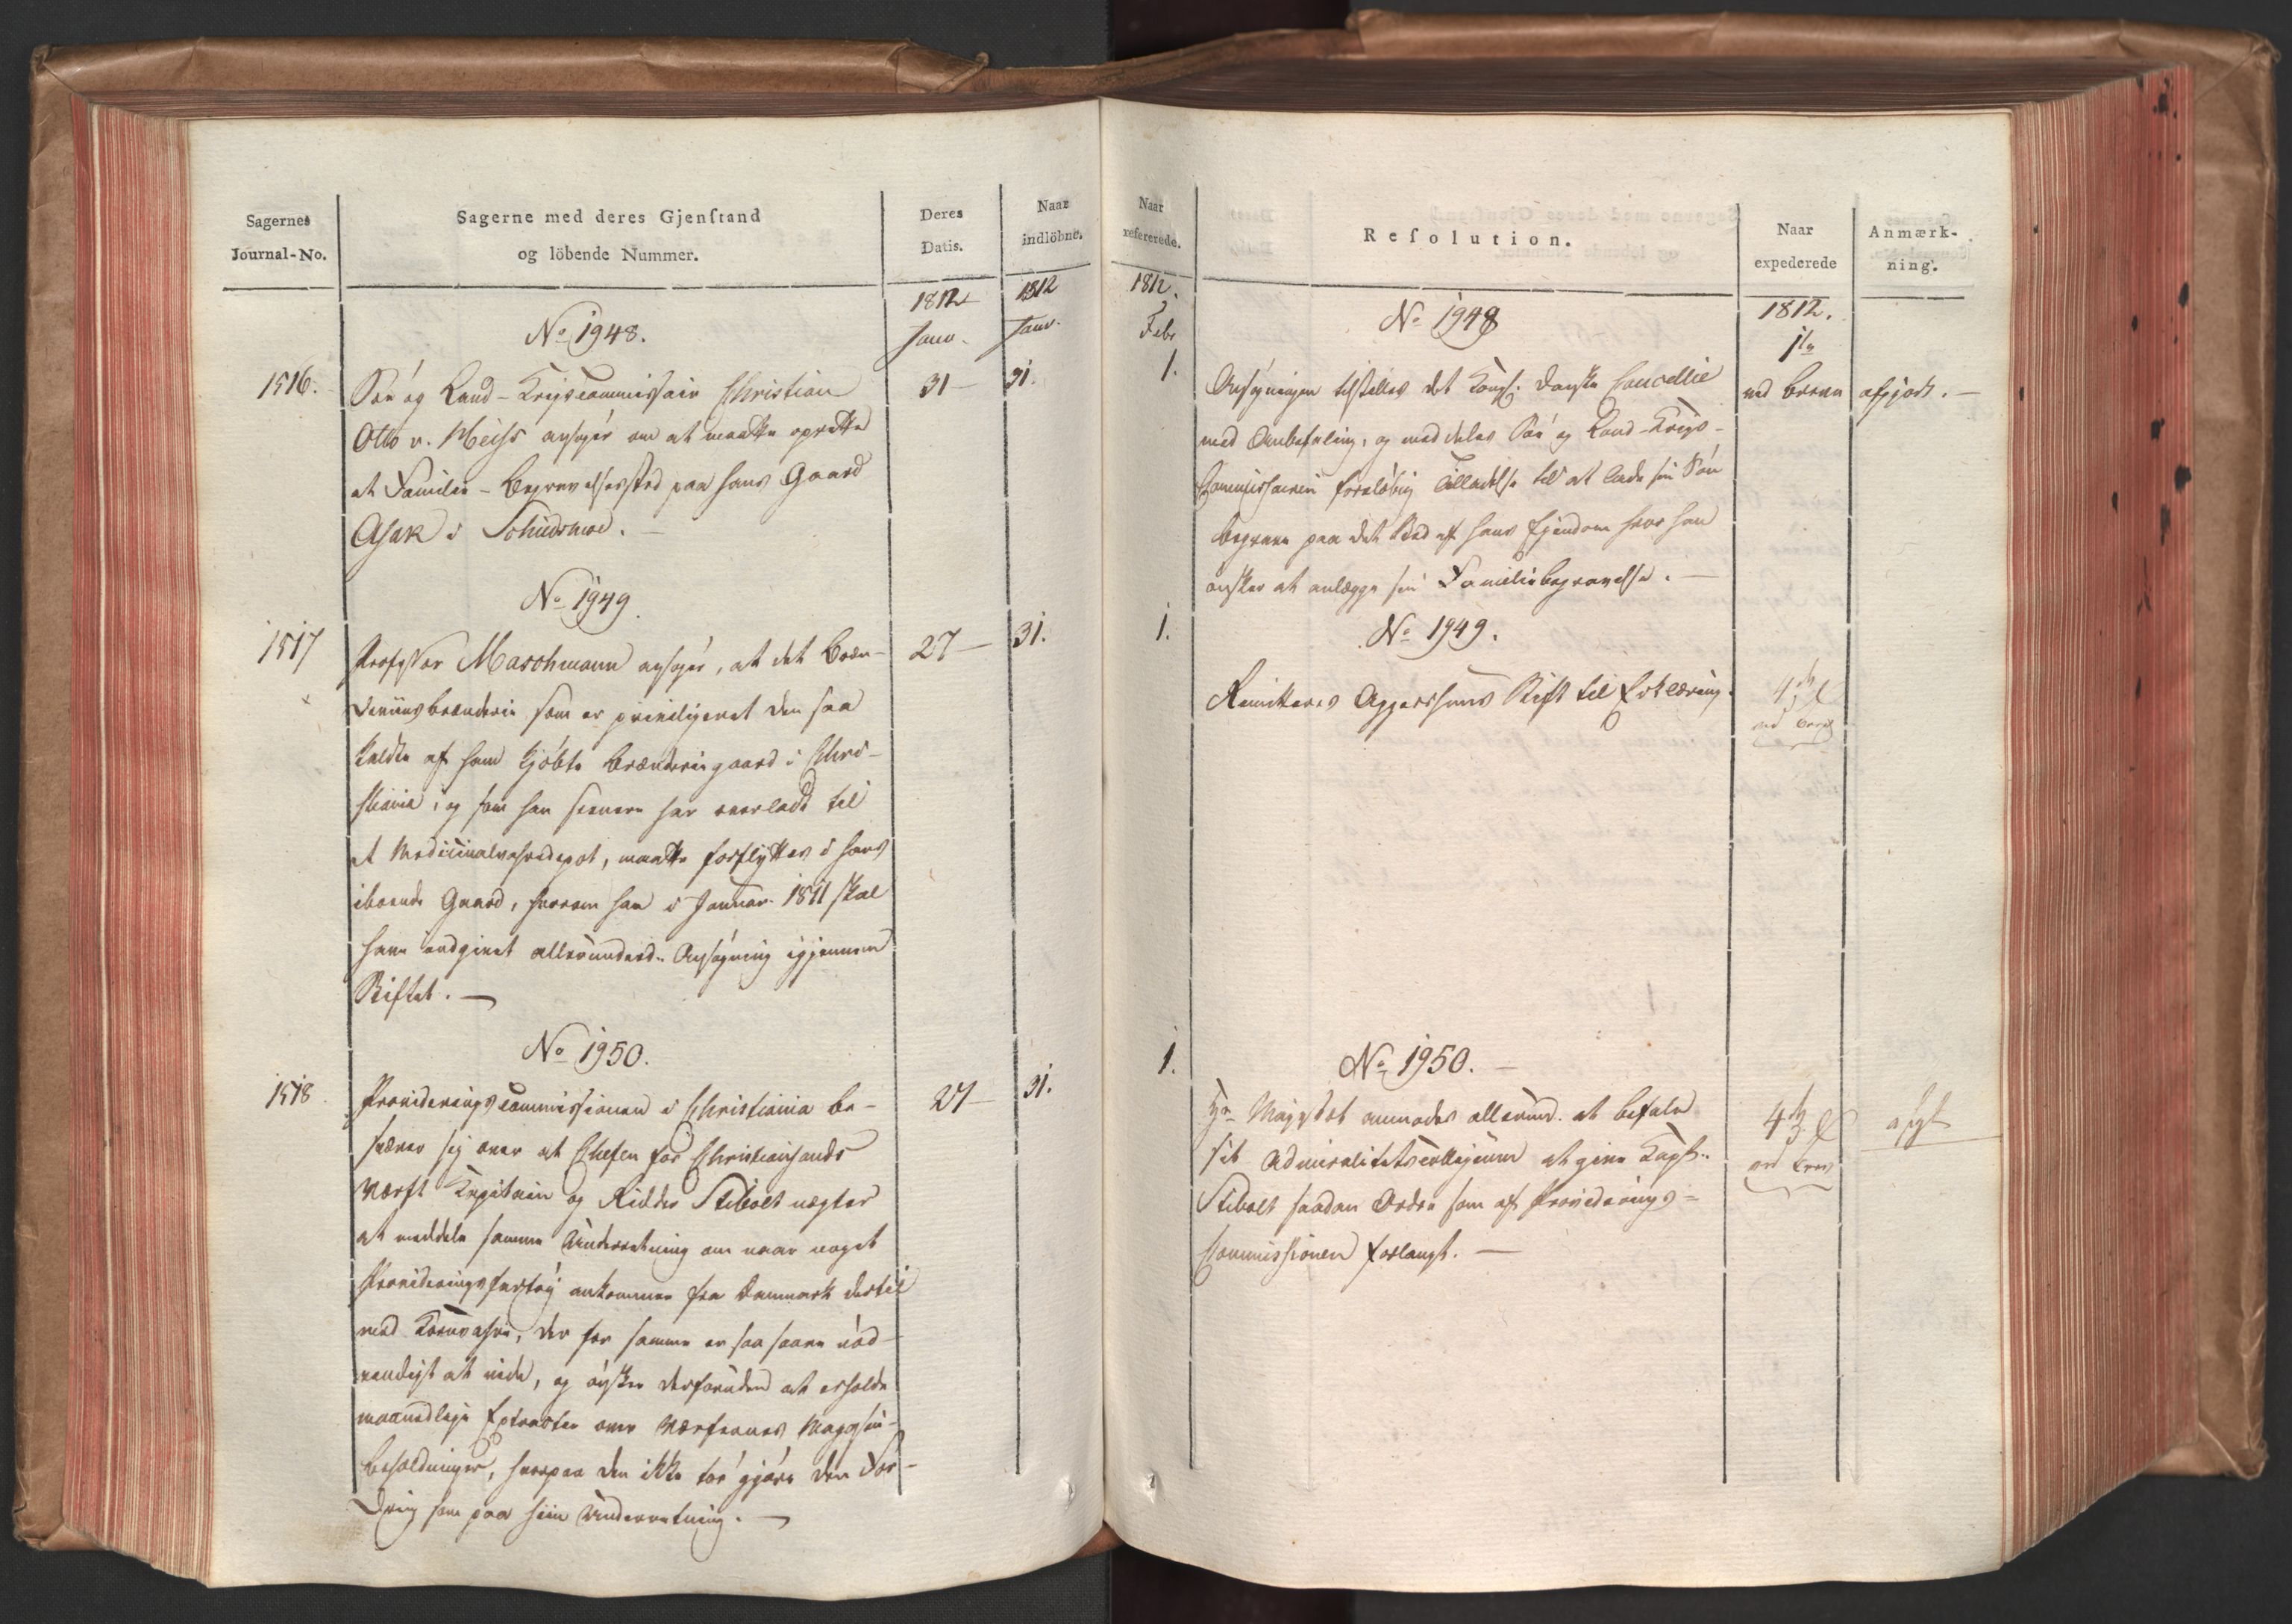 Sagernes
Journal-No.
Sagerne med deres Gjenstand
og löbende Nummer.
Deres
Datis.
Naar
indlöbne.
1812
Janv.
1812
Janv.
No 1948.
1516.
Söe og Land-Krigscommissair Christian
31
31.
Otto v. Meiss ansøger om at maatte oprette
et Familie-Begravelsessted paa hans Gaard
Asak i Schiedsmoe.
No 1949.
1517
Professor Maschmann ansøger, at det Bræn-
27
31.
deviinsbrænderie som er privilegeret den saa
kaldte af ham kjöbte Brænderiegaard i Chri-
stiania, og som han senere har overladt til
et Medicinalvahredepot, maatte forflyttes i hans
iboende Gaard, hvorom han i Januar 1811 skal
have indgivet allerunderd. Ansøgning igjennem
Stiftet.
No 1950.
1518
Provideringscommissionen i Christiania be-
27
31.
sværer sig over at Chefen for Christiansands
Værft Capitain og Ridder Stibolt nægter
at meddele samme Underretning om naar noget
Provideringsfartöy ankommer fra Danmark dertil
med Kornvahre, der for samme er saa saare nöd-
vendigt at vide, og önsker desforuden at erholde
maanedlige Extracter over Værfternes Magazin-
beholdninger, hvorpaa den ikke tör gjöre den For-
dring som paa hiin Underretning.
Naar
refererede.
Resolution.
Naar
expederede
Anmærk-
ning.
1812.
Febr
1812.
No 1948
1.
Ansøgningen tilstilles det Kongl. danske Cancellie
afgjort.
med Anbefaling, og meddeles Söe og Land-Krigs-
Commissairen foreløbig Tilladelse til at lade sin Sön
begrave paa det Sted af hans Ejendom hvor han
önsker at anlægge sin Familiebegravelse.
1.
No 1949.
Remitteres Aggershuus Stift til Erklæring.
1.
No 1950.
Hs. Majestet anmodes allerund. at befale
sit Admiralitetscollegium at give Capt.
Stibolt saadan Ordre som af Provederings-
Commissionen forlangt.